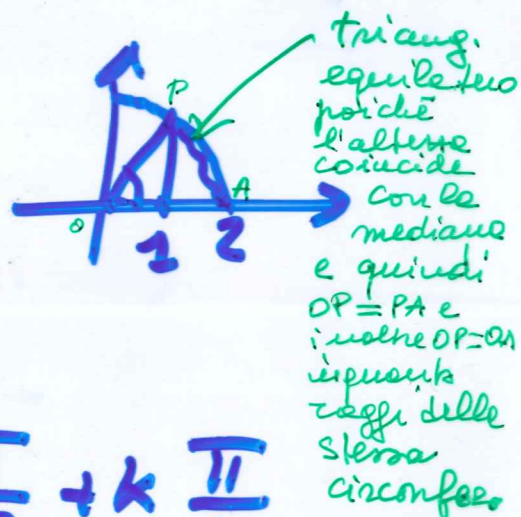 triang.
equilatero
poiché
l'altezza
coincide
con la
mediana
e quindi
OP = PA e
inoltre OP=OA
inquanto
raggi delle
stessa
circonfer.
P
O
A
1
2
+ k II